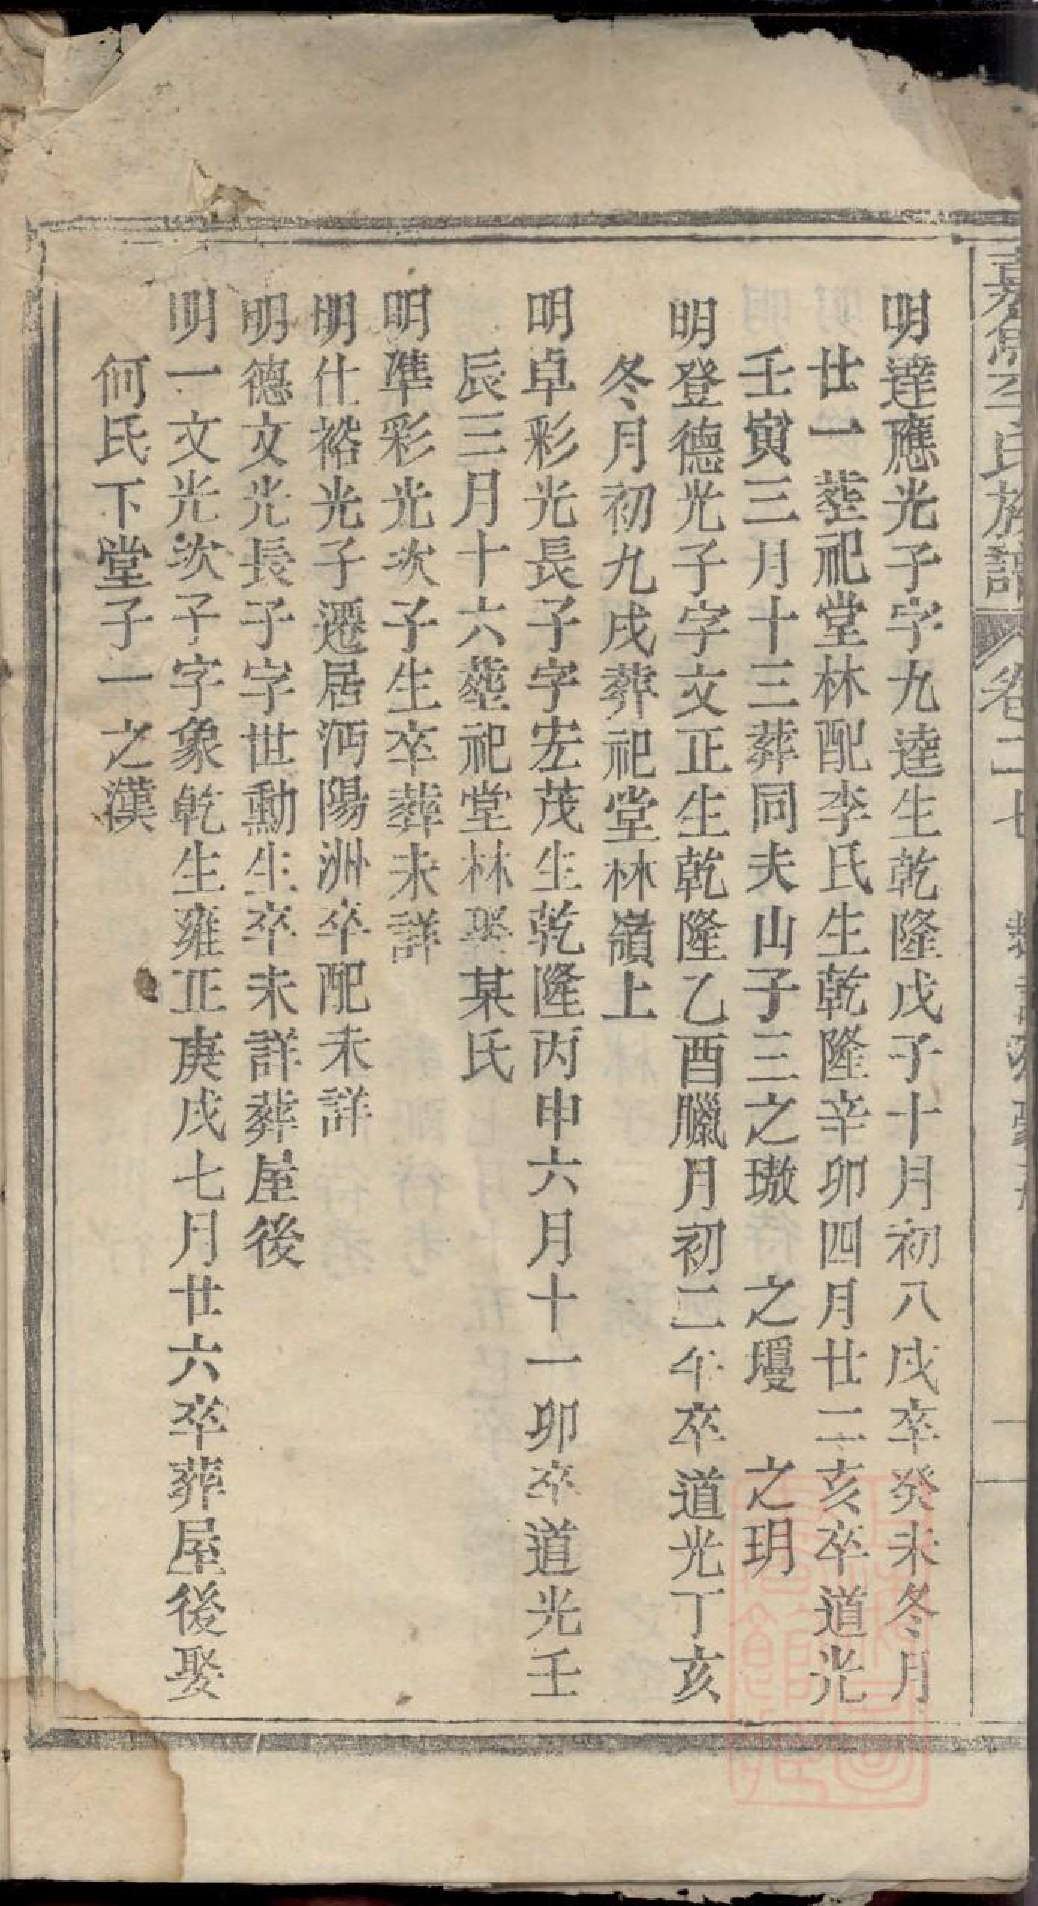 李氏族譜 卷二
明達應光子字九逵生乾隆戊子十月初八戌卒癸未冬月
廿一葬祀堂林配李氏生乾隆辛卯四月廿二亥卒道光
壬寅三月十三葬同夫山子三之璈 之瓊 之玥
明登德光子字文正生乾隆乙酉臘月初二午卒道光丁亥
冬月初九戌葬祀堂林嶺上
明卓彩光長子字宏茂生乾隆丙申六月十一卯卒道光壬
辰三月十六葬祀堂林娶某氏
明準彩光次子生卒葬未詳
明仕裕光子遷居沔陽洲卒配未詳
明德文光長子字世勳生卒未詳葬屋後
明一文光次子字象乾生雍正庚戌七月廿六卒葬屋後娶
何氏下堂子一之漢